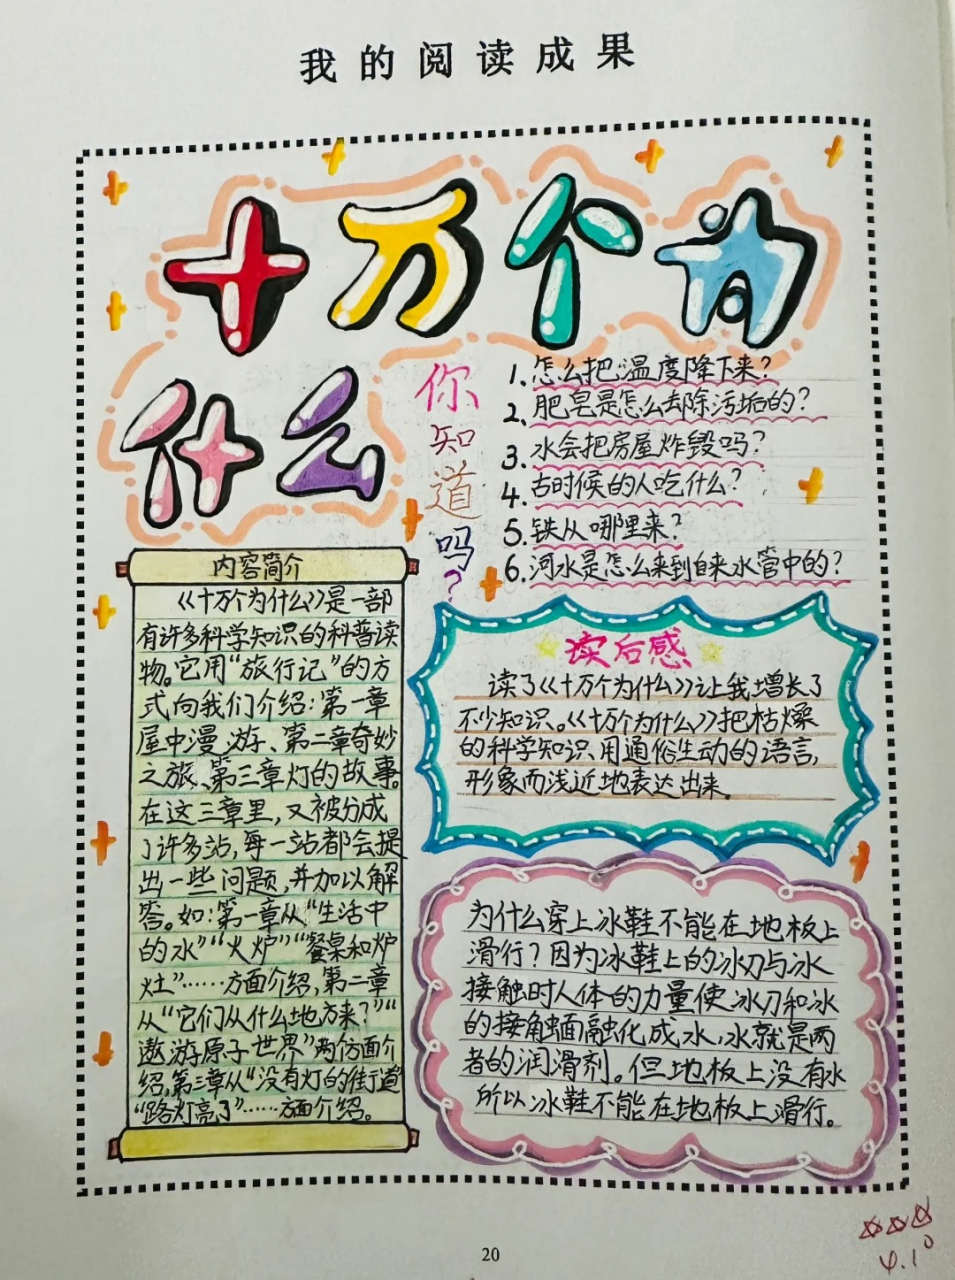 我的阅读成果
十万个为
什么
你知道吗?
1.怎么把温度降下来?
2.肥皂是怎么去除污垢的?
3.水会把房屋炸毁吗?
4.古时候的人吃什么?
5.铁从哪里来?
6.河水是怎么来到自来水管中的?
内容简介
《十万个为什么》是一部
有许多科学知识的科普读
物。它用“旅行记”的方
式向我们介绍:第一章
屋中漫游、第二章奇妙
之旅、第三章灯的故事。
在这三章里,又被分成
了许多站,每一站都会提
出一些问题,并加以解
答。如:第一章从“生活中
的水”“火炉”“餐桌和炉
灶”……方面介绍,第二章
从“它们从什么地方来?”“
遨游原子世界”两个方面介
绍,第三章从“没有灯的街道”
“路灯亮了”……方面介绍。
读后感
读了《十万个为什么》让我增长了
不少知识。《十万个为什么》把枯燥
的科学知识、用通俗生动的语言,
形象而浅近地表达出来。
为什么穿上冰鞋不能在地板上
滑行?因为冰鞋上的冰刀与冰
接触时人体的力量使冰刀和冰
的接触面融化成水,水就是两
者的润滑剂。但地板上没有水
所以冰鞋不能在地板上滑行。
20
4.10